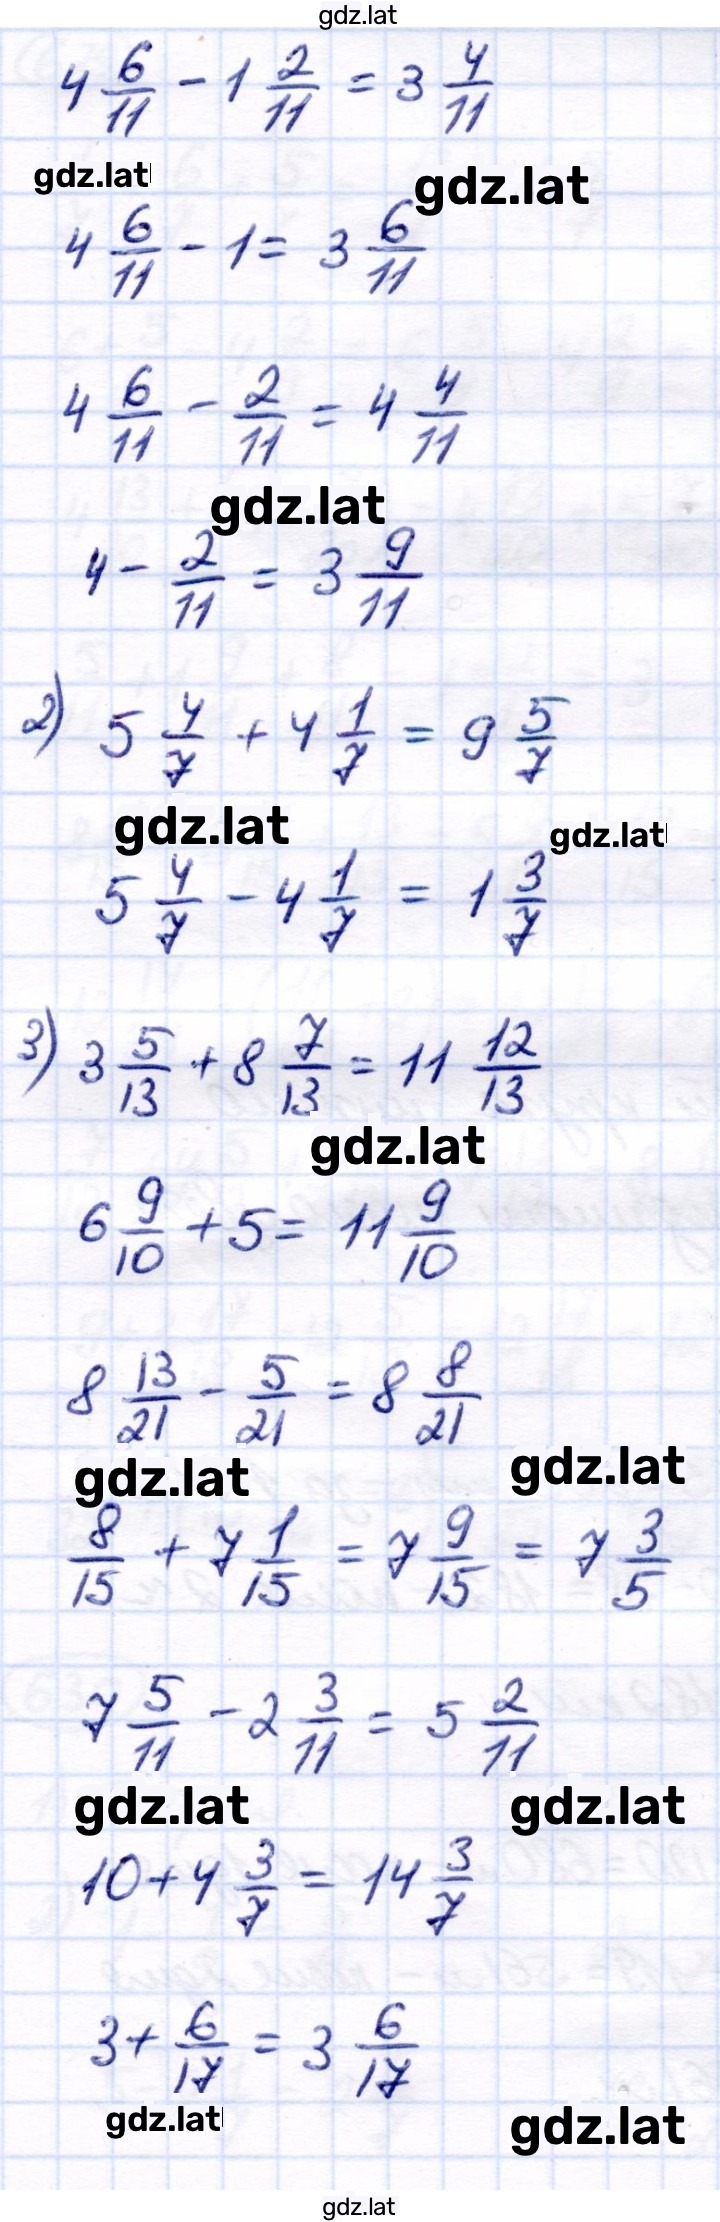 gdz.lat
4 6/11 - 1 2/11 = 3 4/11
gdz.lat gdz.lat
4 6/11 - 1 = 3 6/11
4 6/11 - 2/11 = 4 4/11
gdz.lat
4 - 2/11 = 3 9/11
2) 5 4/7 + 4 1/7 = 9 5/7
gdz.lat gdz.lat
5 4/7 - 4 1/7 = 1 3/7
3) 3 5/13 + 8 7/13 = 11 12/13
gdz.lat
6 9/10 + 5 = 11 9/10
8 13/21 - 5/21 = 8 8/21
gdz.lat gdz.lat
8/15 + 7 1/15 = 7 9/15 = 7 3/5
7 5/11 - 2 3/11 = 5 2/11
gdz.lat gdz.lat
10 + 4 3/7 = 14 3/7
3 + 6/17 = 3 6/17
gdz.lat gdz.lat
gdz.lat